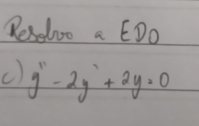 Resolva a EDO
c) y'' - 2y' + 2y = 0